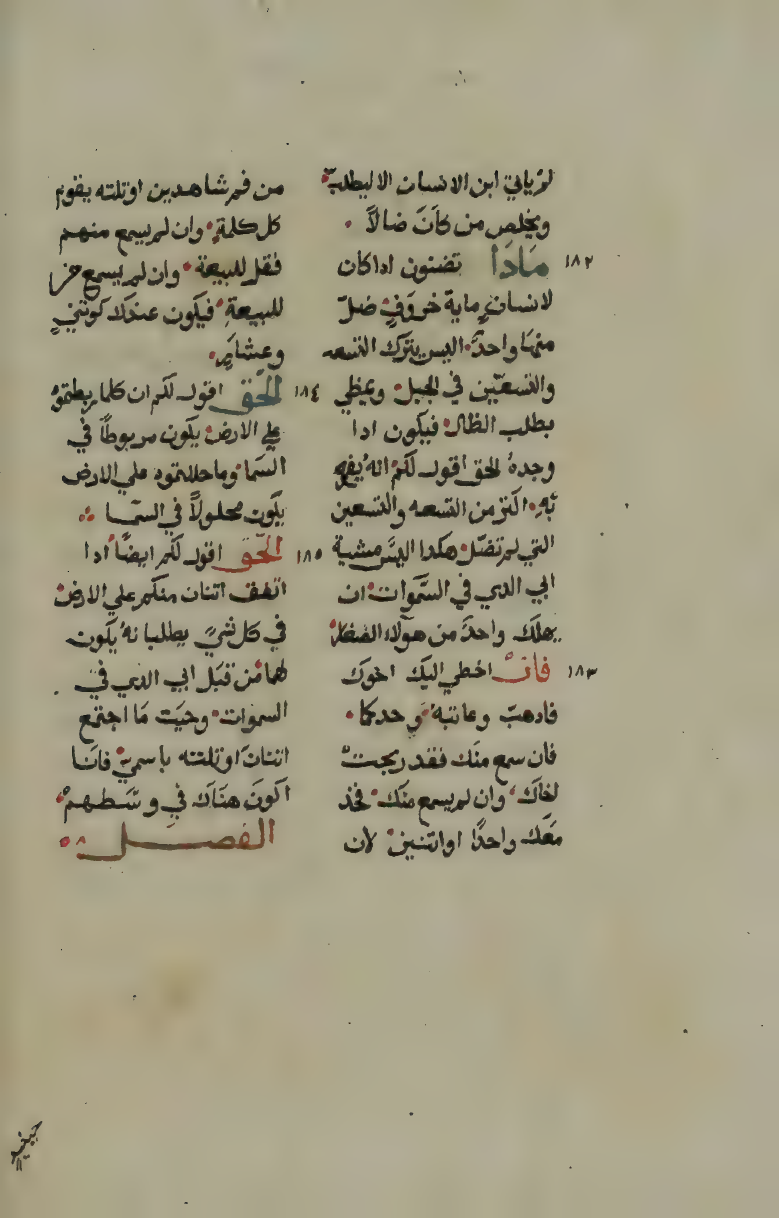 لم ياتي ابن الانسان الا ليطلب
ويخلص من كان ضالا
١٨٢ ماذا تضنون اداكان
لانسان ماية خروف ضل
منها واحد اليس يترك التسعه
والتسعين في الجبل ويمظي
يطلب الظال فيكون ادا
وجده الحق اقول لكم انه يفرح
به اكتر من التسعه والتسعين
التي لم تضل هكدا ليس مشية
ابي الدي في السموات ان
يهلك واحد من هولاء الصغار
١٨٣ فان اخطي اليك اخوك
فادهب وعاتبه وحدكما
فان سمع منك فقد ربحت
اخاك وان لم يسمع منك فخد
معك واحدا او اتنين لان
من فم شاهدين او تلته يقوم
كل كلمة وان لم يسمع منهم
فقل للبيعة وان لم يسمع من
للبيعة فيكون عندك كوتني
وعشار
١٨٤ الحق اقول لكم ان كلما ربطتموه
علي الارض يكون مربوطا في
السما وما حللتموه علي الارض
يكون محلولا في السما
١٨٥ الحق اقول لكم ايضا ادا
اتفق اتنان منكم علي الارض
في كل شي يطلبانه يكون
لهما من قبل ابي الدي في
السموات وحيت ما اجتمع
اتنان او تلته باسمي فانا
اكون هناك في وسطهم
الفصل